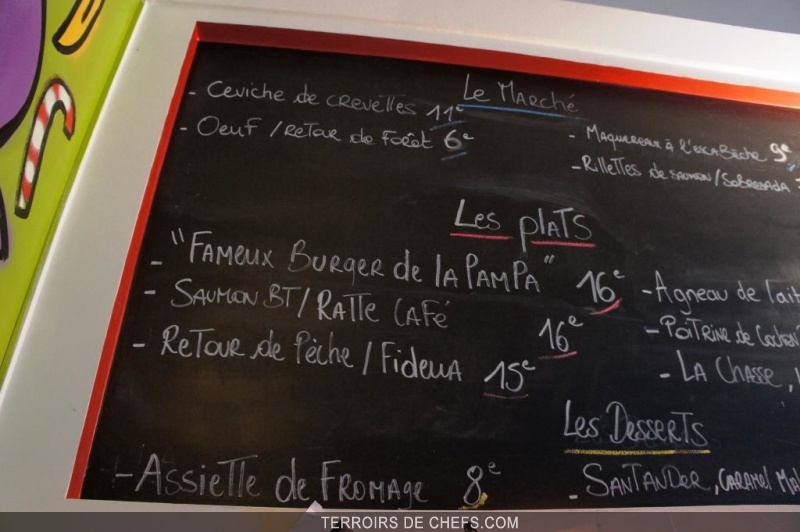 Le Marché
- Ceviche de crevettes 11€
- Oeuf / retour de Forêt 6€
- Maquereaux à l'escabèche 9€
- Rillettes de saumon / Sobrasada
Les plats
- "Fameux Burger de la Pampa" 16€
- Saumon BT / Ratte Café 16€
- Retour de Pêche / Fideua 15€
- Agneau de lait
- Poitrine de
- La Chasse,
Les Desserts
- Assiette de Fromage 8€
- Santander, caramel
TERROIRS DE CHEFS.COM